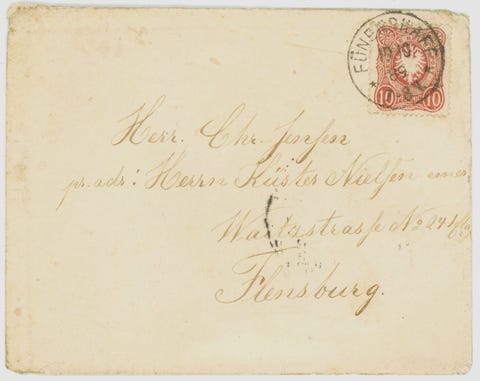 FÜNF
10 10
Herr. Chr. Jensen
pr. adr: Herrn Küster Nielsen emer.
Waitzstrasse No 24
Flensburg.